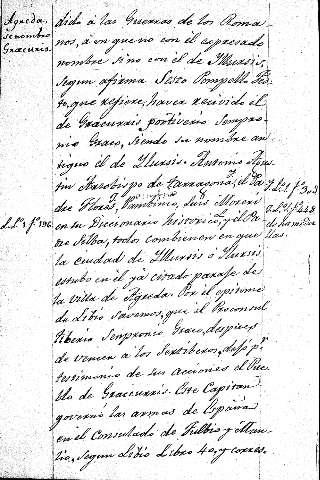 Agreda,
se nombro
Gracurris.
dido à las Guerras de los Roma-
nos, ó en que no con el expresado
nombre si no con el de Ylursis,
segun afirma Sesto Pompello Fes-
to, que refiere, haver recivido el
de Gracurris por Tiverio Sempro-
nio Graco, siendo su nombre an-
tiguo el de Ylursis. Antonio Agus-
tin Arzobispo de Tarragona, el Pa-
dre Florez, Luis Moreri
en su Diccionario historico, y el Pa-
L.L.º 1. fº 196.
dre Silba, todos combienen en que
la ciudad de Ylursis o Ilursis
estubo en el ya citado paraje de
la villa de Agreda. Por el epitome
de Libio savemos, que el Proconsul
Tiberio Sempronio Graco, despues
de vencer a los Zeltiberos, dejó pr.
testimonio de sus acciones el Pue-
blo de Graccurris. Este Capitan
governó las armas de España
en el Consulado de Fulbio y Man-
lio, segun Libio Libro 40, y corres-